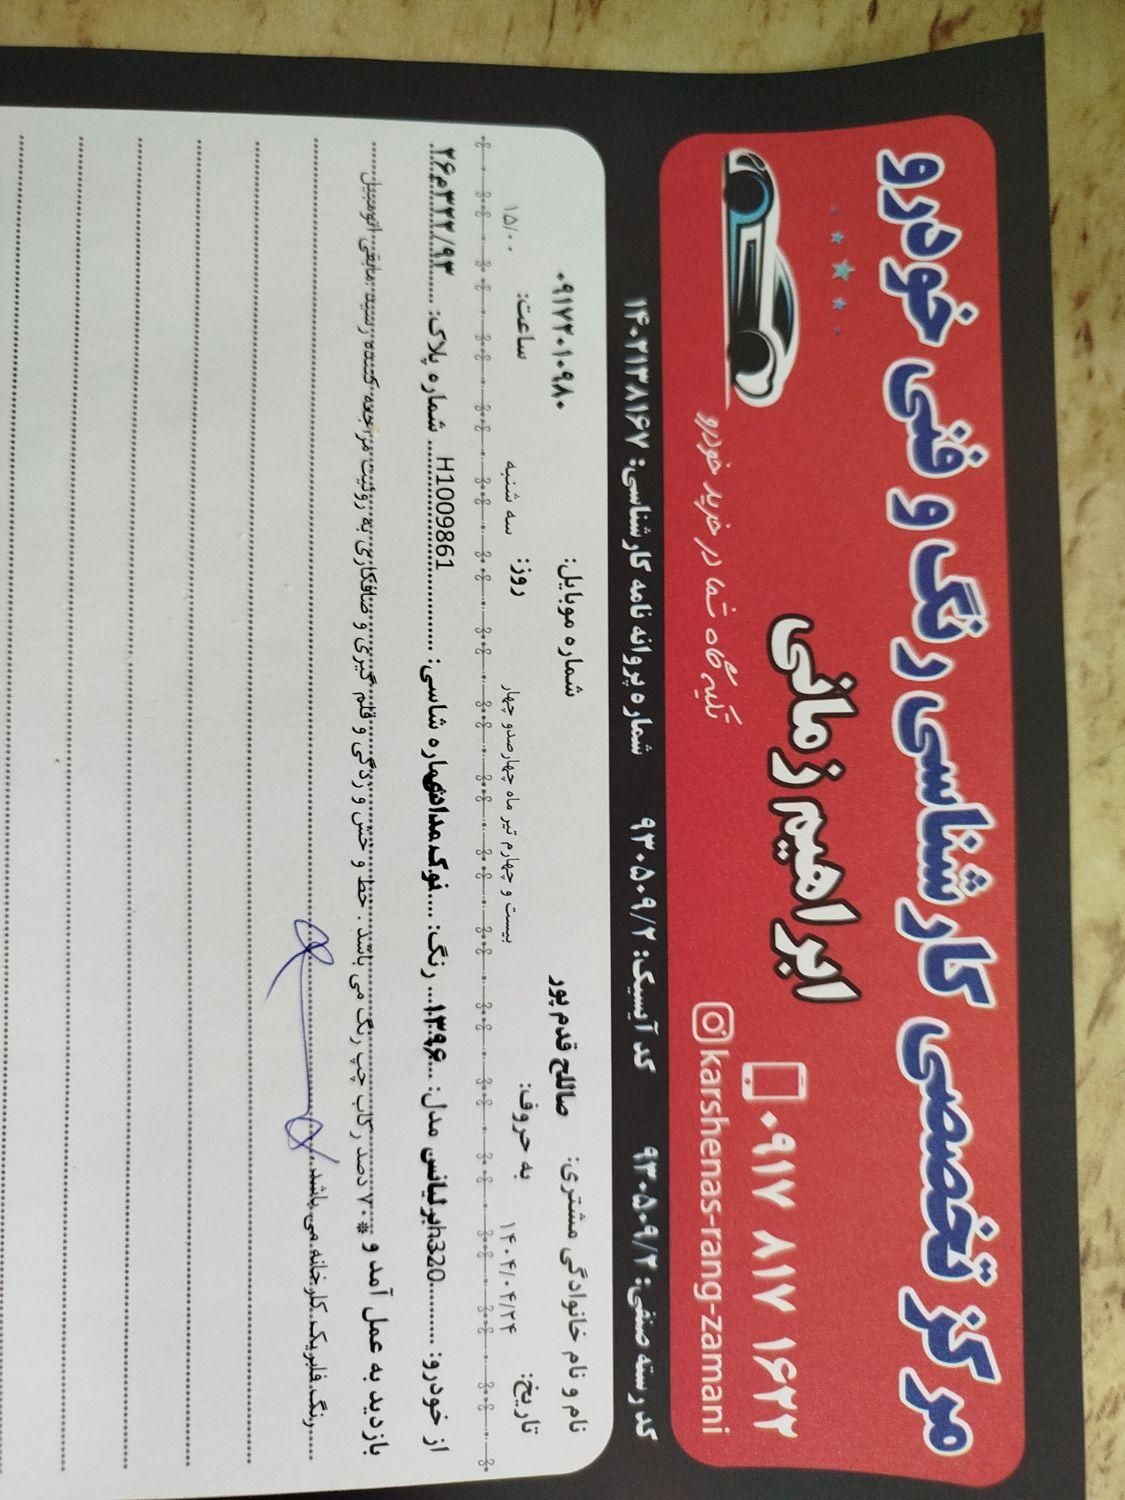 مرکز تخصصی کارشناسی رنگ و فنی خودرو
ابراهیم زمانی
۰۹۱۷ ۸۱۷ ۱۶۲۲
تکیه گاه شما در خرید خودرو
karshenas-rang-zamani
کد رسته صنفی: ۹۳۰۵۰۹/۲ کد آیسیک: ۹۳۰۵۰۹/۲ شماره پروانه نامه کارشناسی: ۱۴۰۲۱۳۸۱۶۷
نام و نام خانوادگی مشتری: صاللح قدم پور شماره موبایل: ۰۹۱۷۲۰۱۰۹۸۰
تاریخ: ۱۴۰۴/۰۴/۲۴ به حروف: بیست و چهارم تیر ماه چهارصدو چهار روز: سه شنبه ساعت: ۱۵/۰۰
از خودرو: برلیانس h320 مدل: ۱۳۹۶ رنگ: نوک مدادی شماره شاسی: H1009861 شماره پلاک: ۲۶م۳۲۲/۹۳
بازدید به عمل آمد و * ۷۰ دصد رکاب چپ رنگ می باشد . خط و خش و زدگی و قلم گیری و صافکاری به روئیت مراجعه کننده رسید مابقی اتومبیل
رنگ فابریک کارخانه می باشد